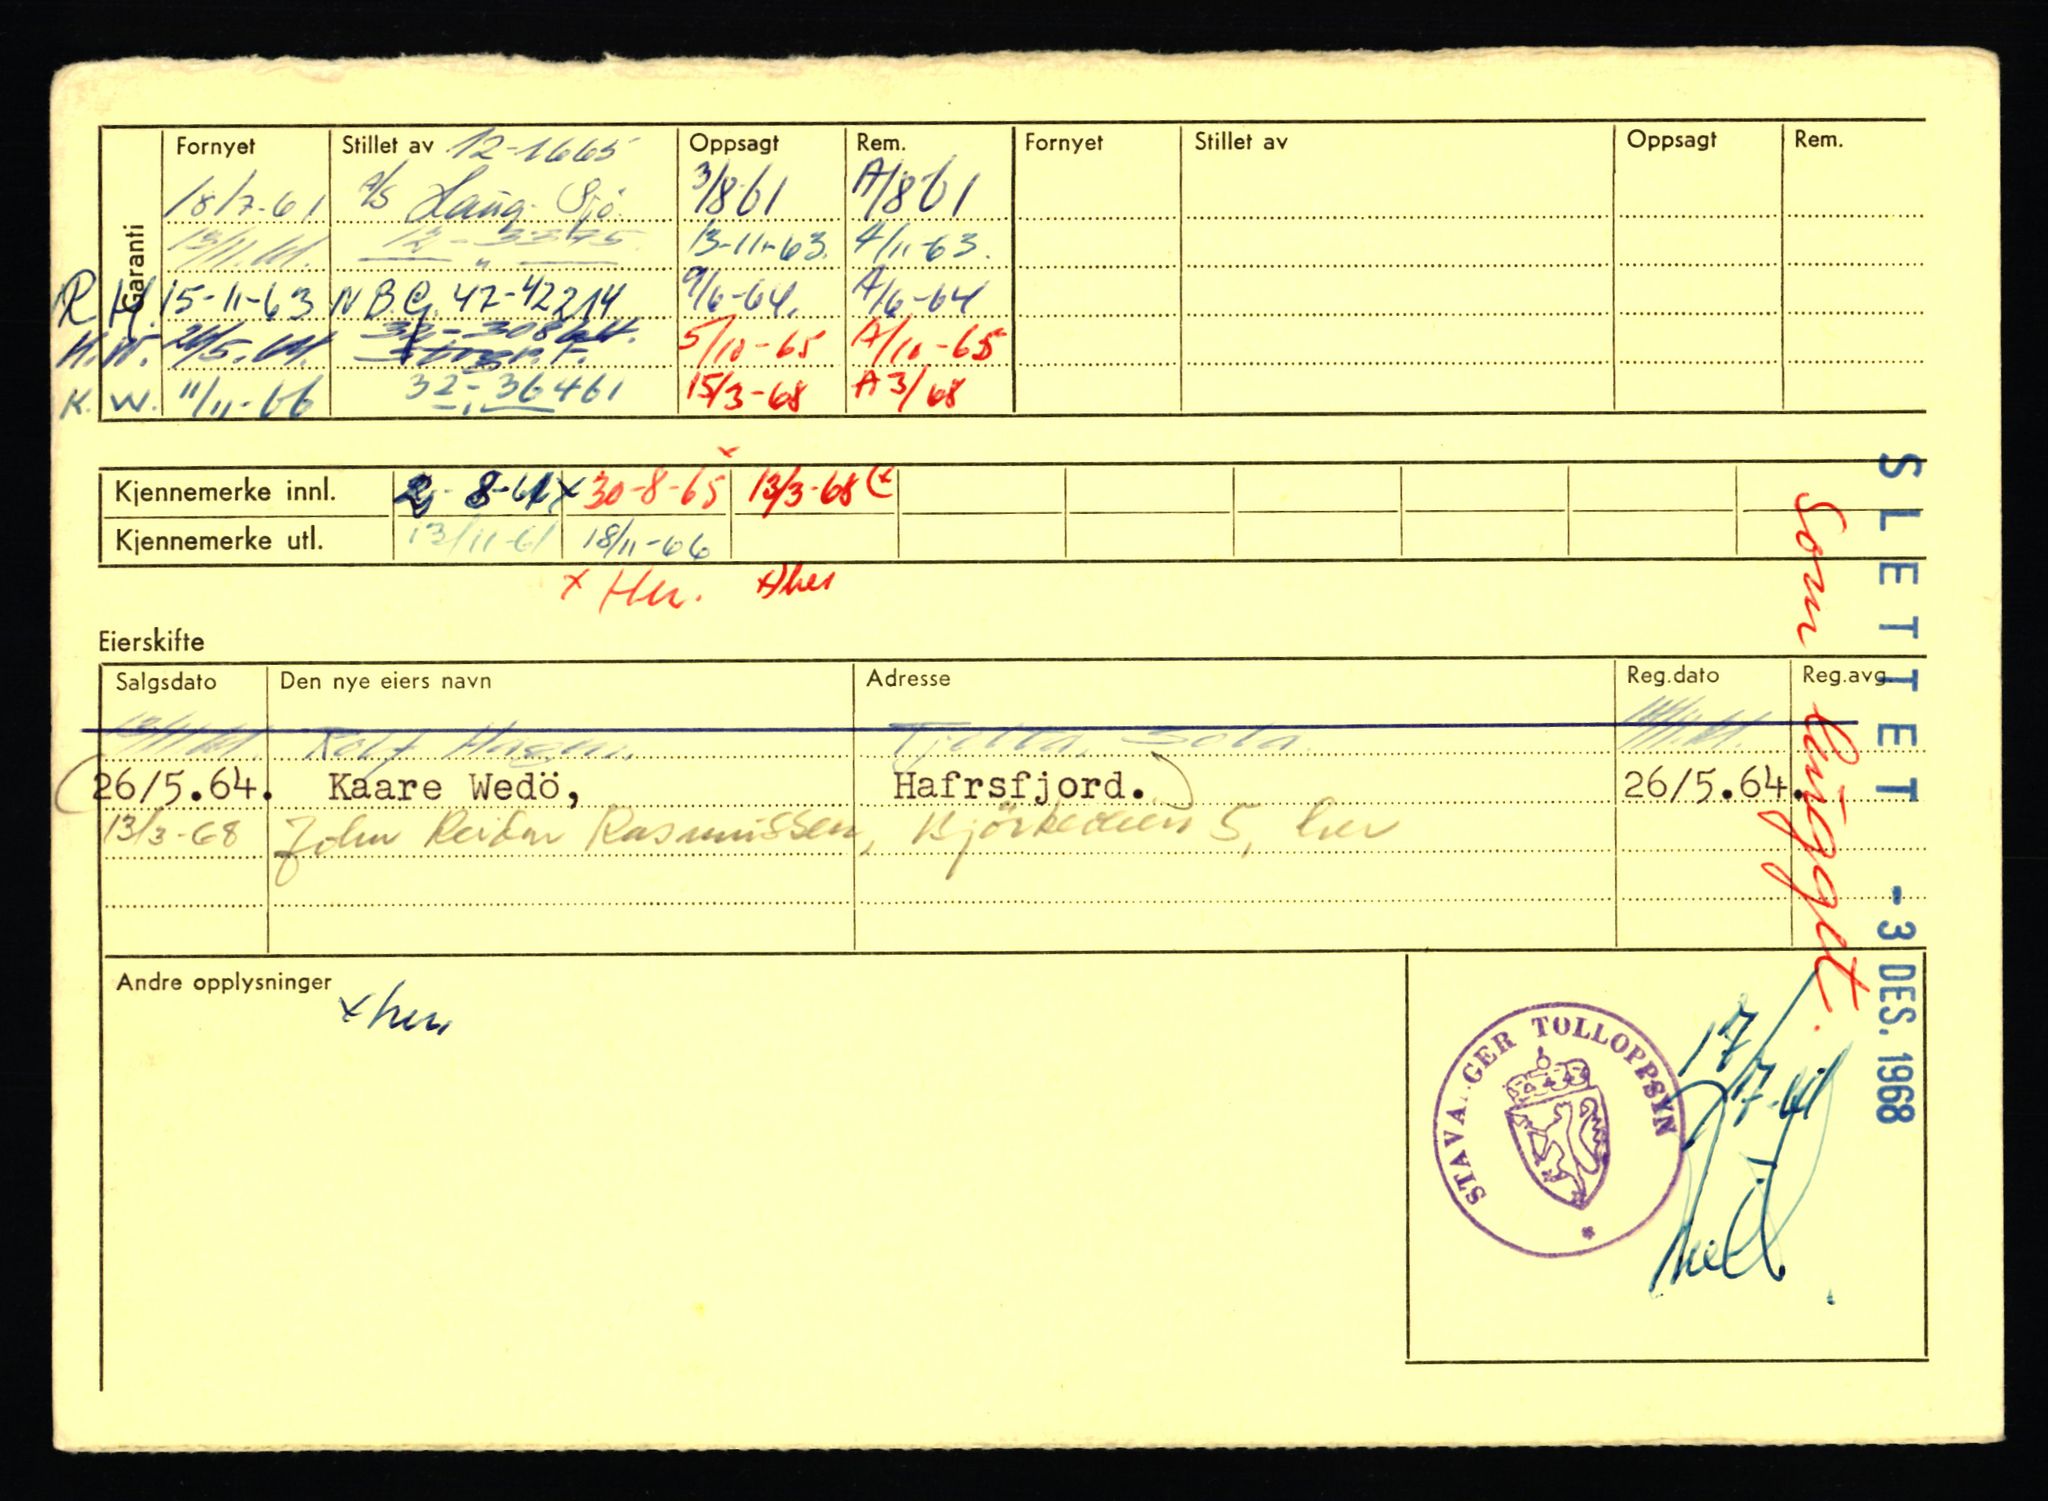 Garanti
Fornyet Stillet av 12-1665 Oppsagt Rem. Fornyet Stillet av Oppsagt Rem.
18/7-61 A/S Haug. Sjö. 3/8 61 A/8 61
13/11.61. 12 - 3375 13-11-63. A/11-63.
R. H. 15-11-63 N.B.G. 47-42214 9/6-64. A/6-64
K.W. 26/5.64. 5/10-65 A/10-65
K. W. 11/11-66 32-36461 15/3-68 A 3/68
Kjennemerke innl. 2-8-61 x 30-8-65 x 13/3-68 (x
Kjennemerke utl. 13/11-61 18/11-66
x Her. x her
Eierskifte
Salgsdato Den nye eiers navn Adresse Reg.dato Reg.avg.
13/11.61. Rolf Hagen. Tjelta, Sola.
26/5.64. Kaare Wedö, Hafrsfjord. 26/5.64.
13/3-68 John Reidar Rasmussen, 5, her
Andre opplysninger
x her
STAVANGER TOLLOPPSYN
17/7-61
SLETTET - 3 DES. 1968
Som utlagt.